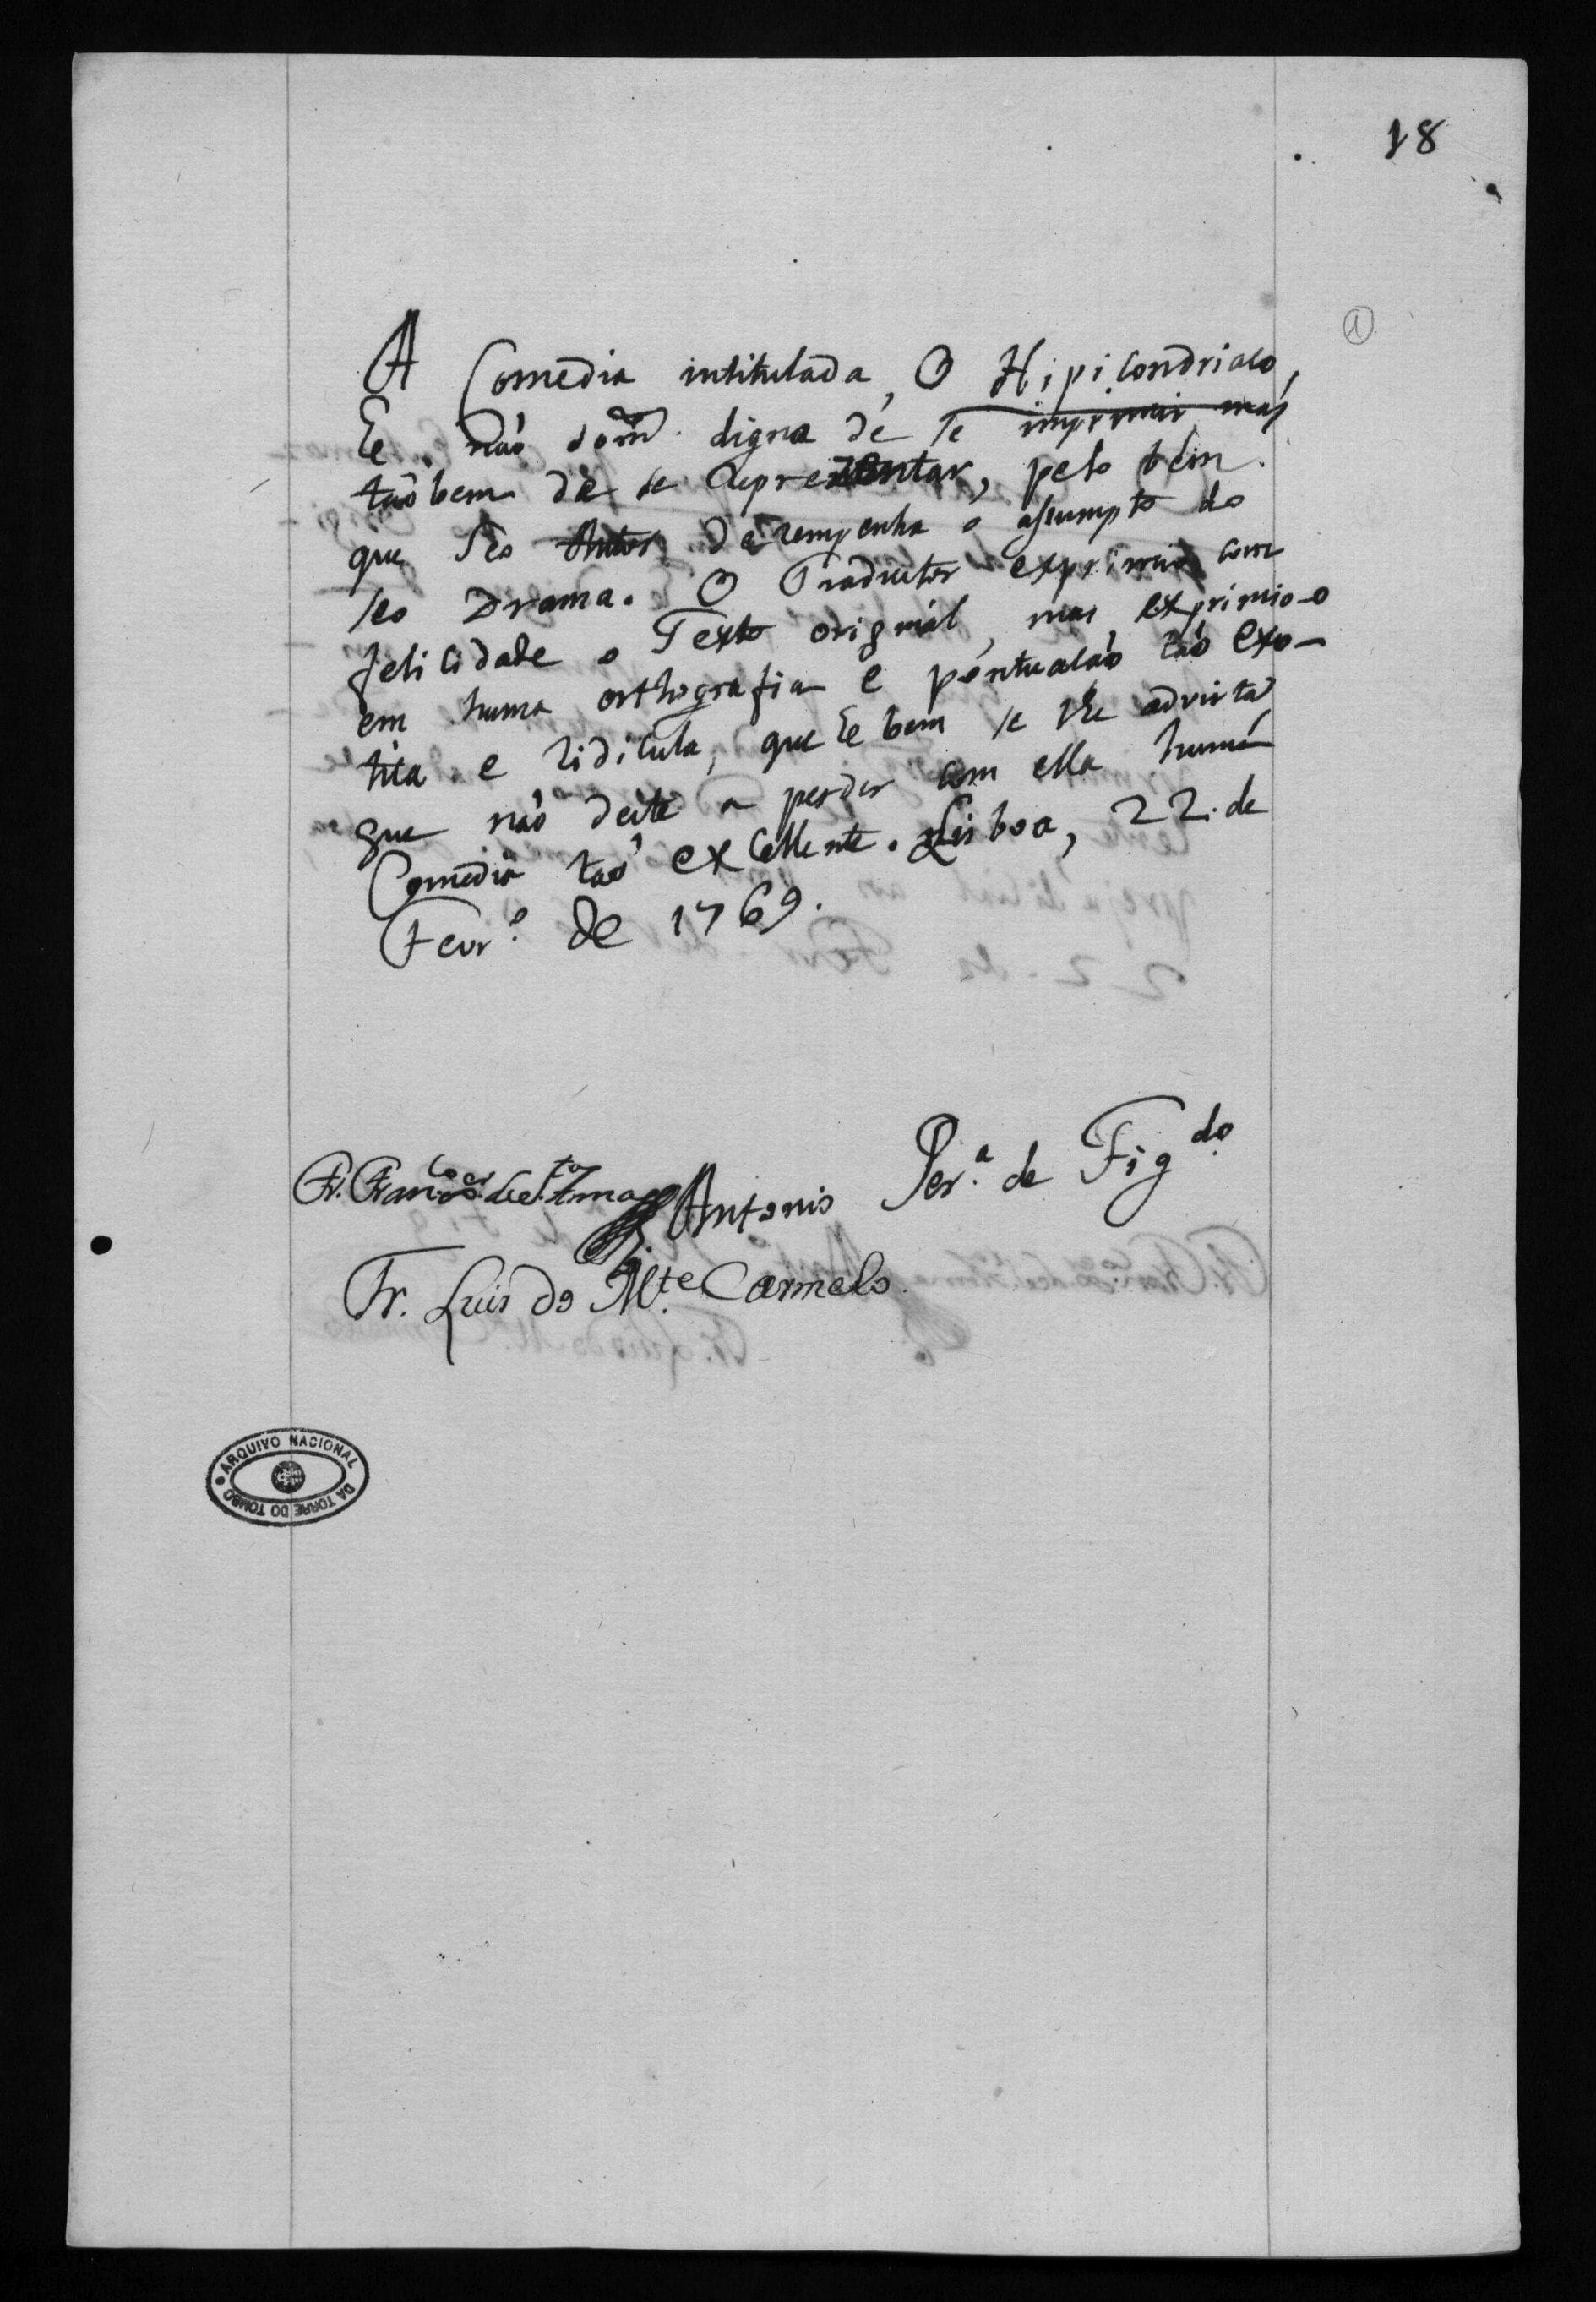 18
1
A Comedia intitulada, O Hipicondriaco,
he não som.te digna de se imprimir, mas
taõbem de se reprezentar, pelo bem
que seo Autor dezempenha o assumpto do
seo Drama. O Traductor exprimio com
felicidade o Texto original, mas exprimio-o
em huma orthografia e pontuacão tão exo-
tica e ridicula, que he bem se lhe advirta
que não deite a perder com ella huma
Comedia tao excellente. Lisboa, 22. de
Fevr.o de 1769.
Antonio Per.a de Fig.do
Fr. Fran.co de S.ta Anna
Fr. Luis do M.te Carmelo
ARQUIVO NACIONAL
DA TORRE DO TOMBO